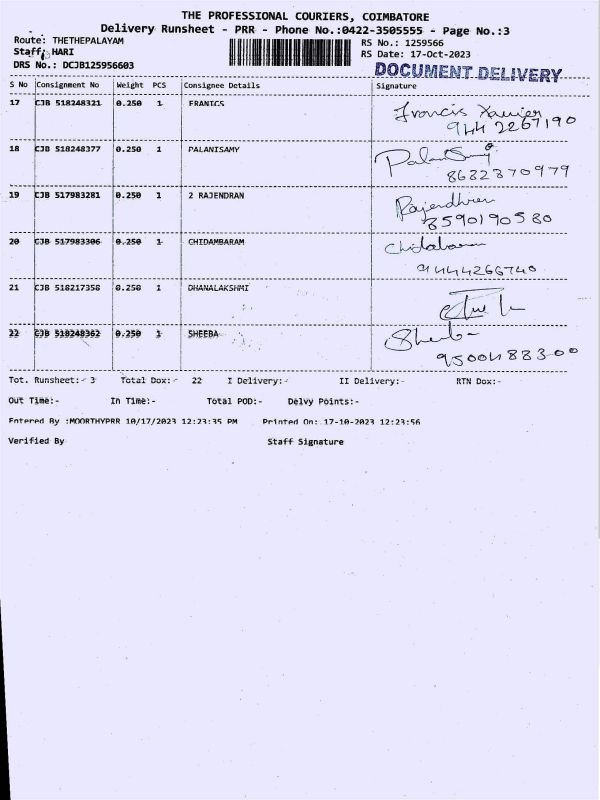 THE PROFESSIONAL COURIERS, COIMBATORE
Delivery Runsheet - PRR - Phone No.:0422-3505555 - Page No.:3
Route: THETHEPALAYAM RS No.: 1259566
Staff: HARI RS Date: 17-Oct-2023
DRS No.: DCJB125956603 DOCUMENT DELIVERY
S No Consignment No Weight PCS Consignee Details Signature
17 CJB 518248321 0.250 1 FRANICS Francis Xavier
944 2267190
18 CJB 518248377 0.250 1 PALANISAMY
8632370979
19 CJB 517983281 0.250 1 2 RAJENDRAN Rajendhren
8590190580
20 CJB 517983306 0.250 1 CHIDAMBARAM
9444266740
21 CJB 518217358 0.250 1 DHANALAKSHMI
22 CJB 518248362 0.250 1 SHEEBA Sheeba
9500488300
Tot. Runsheet:- 3 Total Dox:- 22 I Delivery:- II Delivery:- RTN Dox:-
Out Time:- In Time:- Total POD:- Delvy Points:-
Entered By :MOORTHYPRR 10/17/2023 12:23:35 PM Printed On: 17-10-2023 12:23:56
Verified By Staff Signature